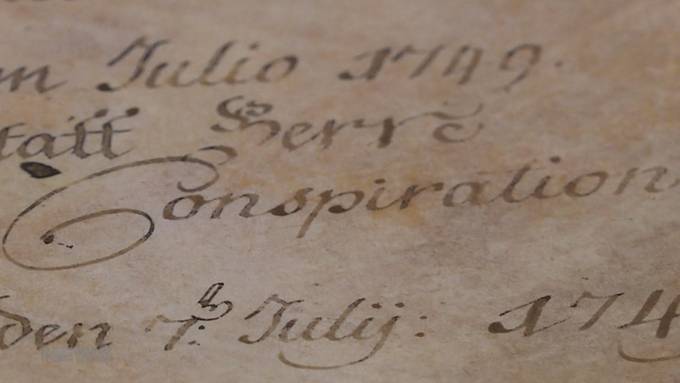 m Julio 1749.
statt Herrē
Conspiration
den 7: July: 174